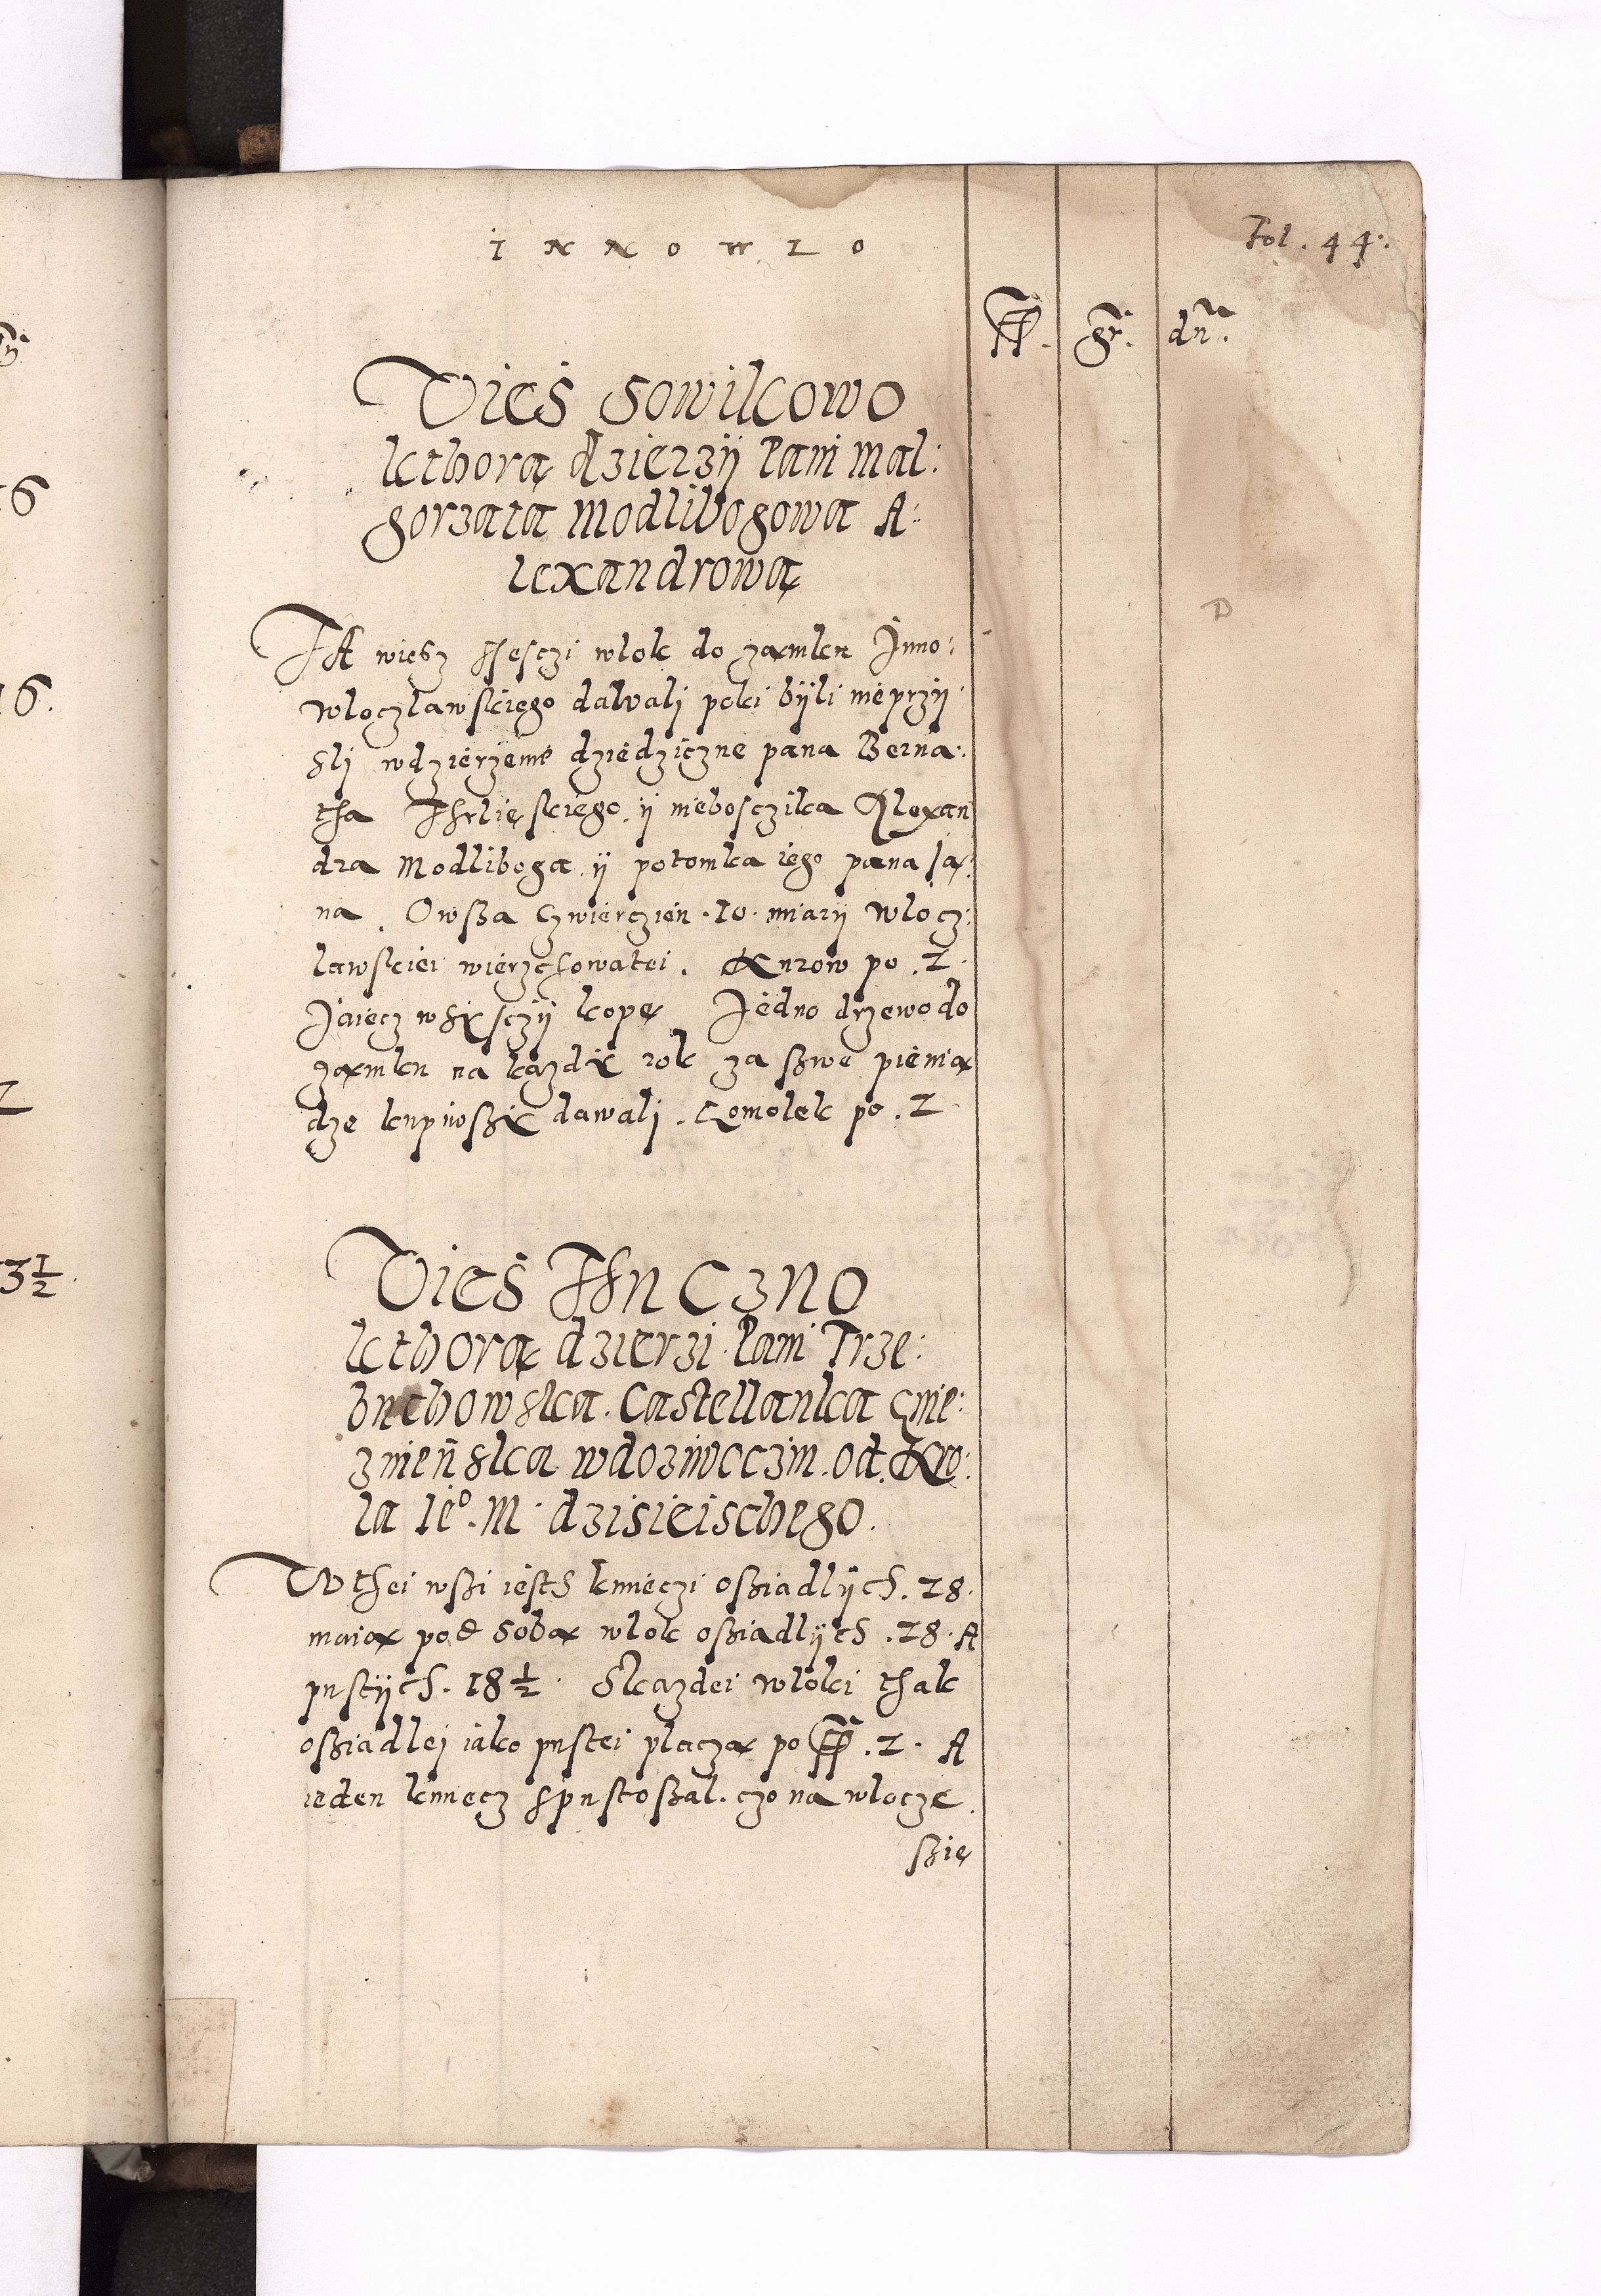 INNOWLO
Fol. 44.
gr. dn.
Wies Sowikowo
kthorą dzierzÿ Pani Mal:
gorzata Modlibogowa A:
lexandrowa
TA wiesz ssesczi wlok do zamku Inno:
wloczlawskiego dawali poki bÿli nieprzÿ
sli wdzierzenie dziedziczne pana Berna:
tha ÿ nieboszika Alexan
dra Modliboga ÿ potomka iego pana Ja:
na. Owsza Czwierczien . 10 . miarÿ wlocz:
lawskiei wierzchowatei . Kurow po . 2
Jaiecz wssÿsczÿ kopę Jedno drzewo do
zamku na kazdÿ rok za szwe pienia
dze kupnoszÿ dawali . Gomolek po . 2
Wies Thuczno
kthorą dzierzi Pani Trze:
buchowska . Castellanka Gnie:
znienska wdoziwoczim . od Kro:
la Ie⁰ . M . dzisieischego .
W thei wszi iesth kmieczi osziadlÿch . 28 .
maią pod sobą wlok osziadlÿch . 28 . A
pustÿch . 18 ½ . Skazdei wloki thak
osziadlej iako pustei placzą po . 2 . A
ieden kmiecz spustoszal . czo na wlocze
szie